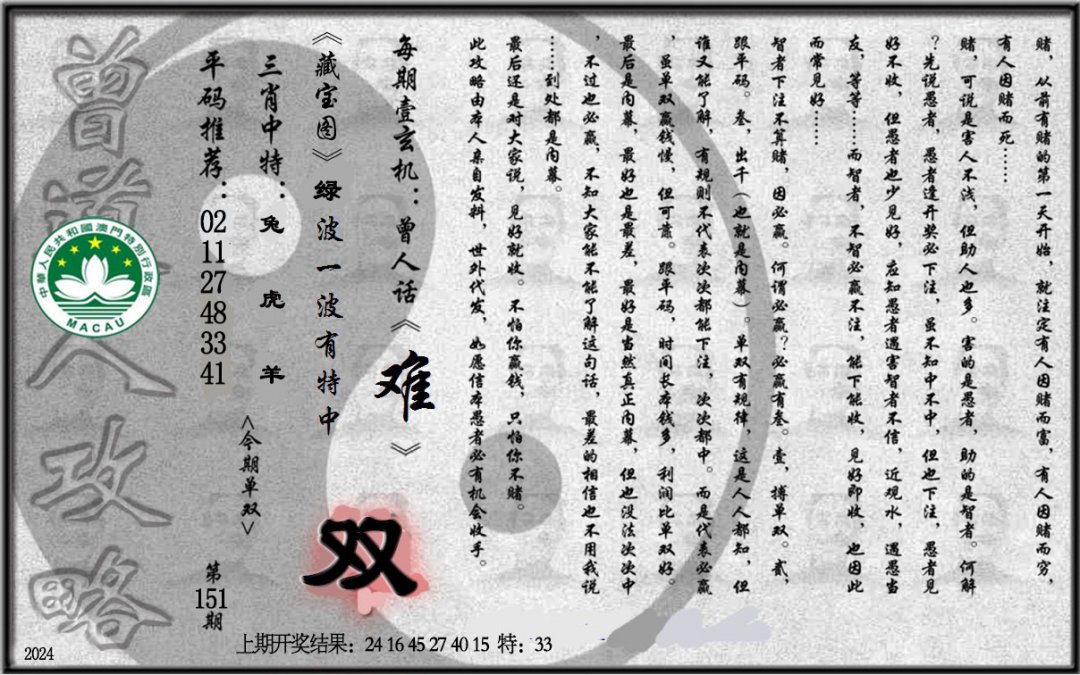 赌，从前有赌的第一天开始，就注定有人因赌而富，有人因赌而穷，
有人因赌而死……
赌，可说是害人不浅，但助人也多。害的是愚者，助的是智者。何解
？先说愚者，愚者逢开奖必下注，虽不知中不中，但也下注，愚者见
好不收，但愚者也少见好，应知愚者遇害智者不信，近观水，遇愚当
友，等等……而智者，不智必赢不注，能下能收，见好即收，也因此
而常见好……
智者下注不算赌，因必赢。何谓必赢？必赢有叁。壹，搏单双。贰，
跟平码。叁，出千（也就是内幕）。单双有规律，这是人人都知，但
谁又能了解，有规则不代表次次都能下注，次次都中。而是代表必赢
，虽单双赢钱慢，但可靠。跟平码，时间长本钱多，利润比单双好。
最后是内幕，最好也是最差，最好是当然真正内幕，但也没法次次中
，不过也必赢，不知大家能不能了解这句话，最差的相信也不用我说
……到处都是内幕。
最后还是对大家说，见好就收。不怕你赢钱，只怕你不赌。
此攻略由本人亲自发料，世外代发，如愿信本愚者必有机会收手。
每期壹玄机：曾人话《难》
《藏宝图》绿波一波有特中
三肖中特：兔虎羊
<今期单双>
双
平码推荐：02 11 27 48 33 41
第151期
曾道人攻略
中華人民共和國澳門特別行政區
MACAU
上期开奖结果：24 16 45 27 40 15 特：33
2024